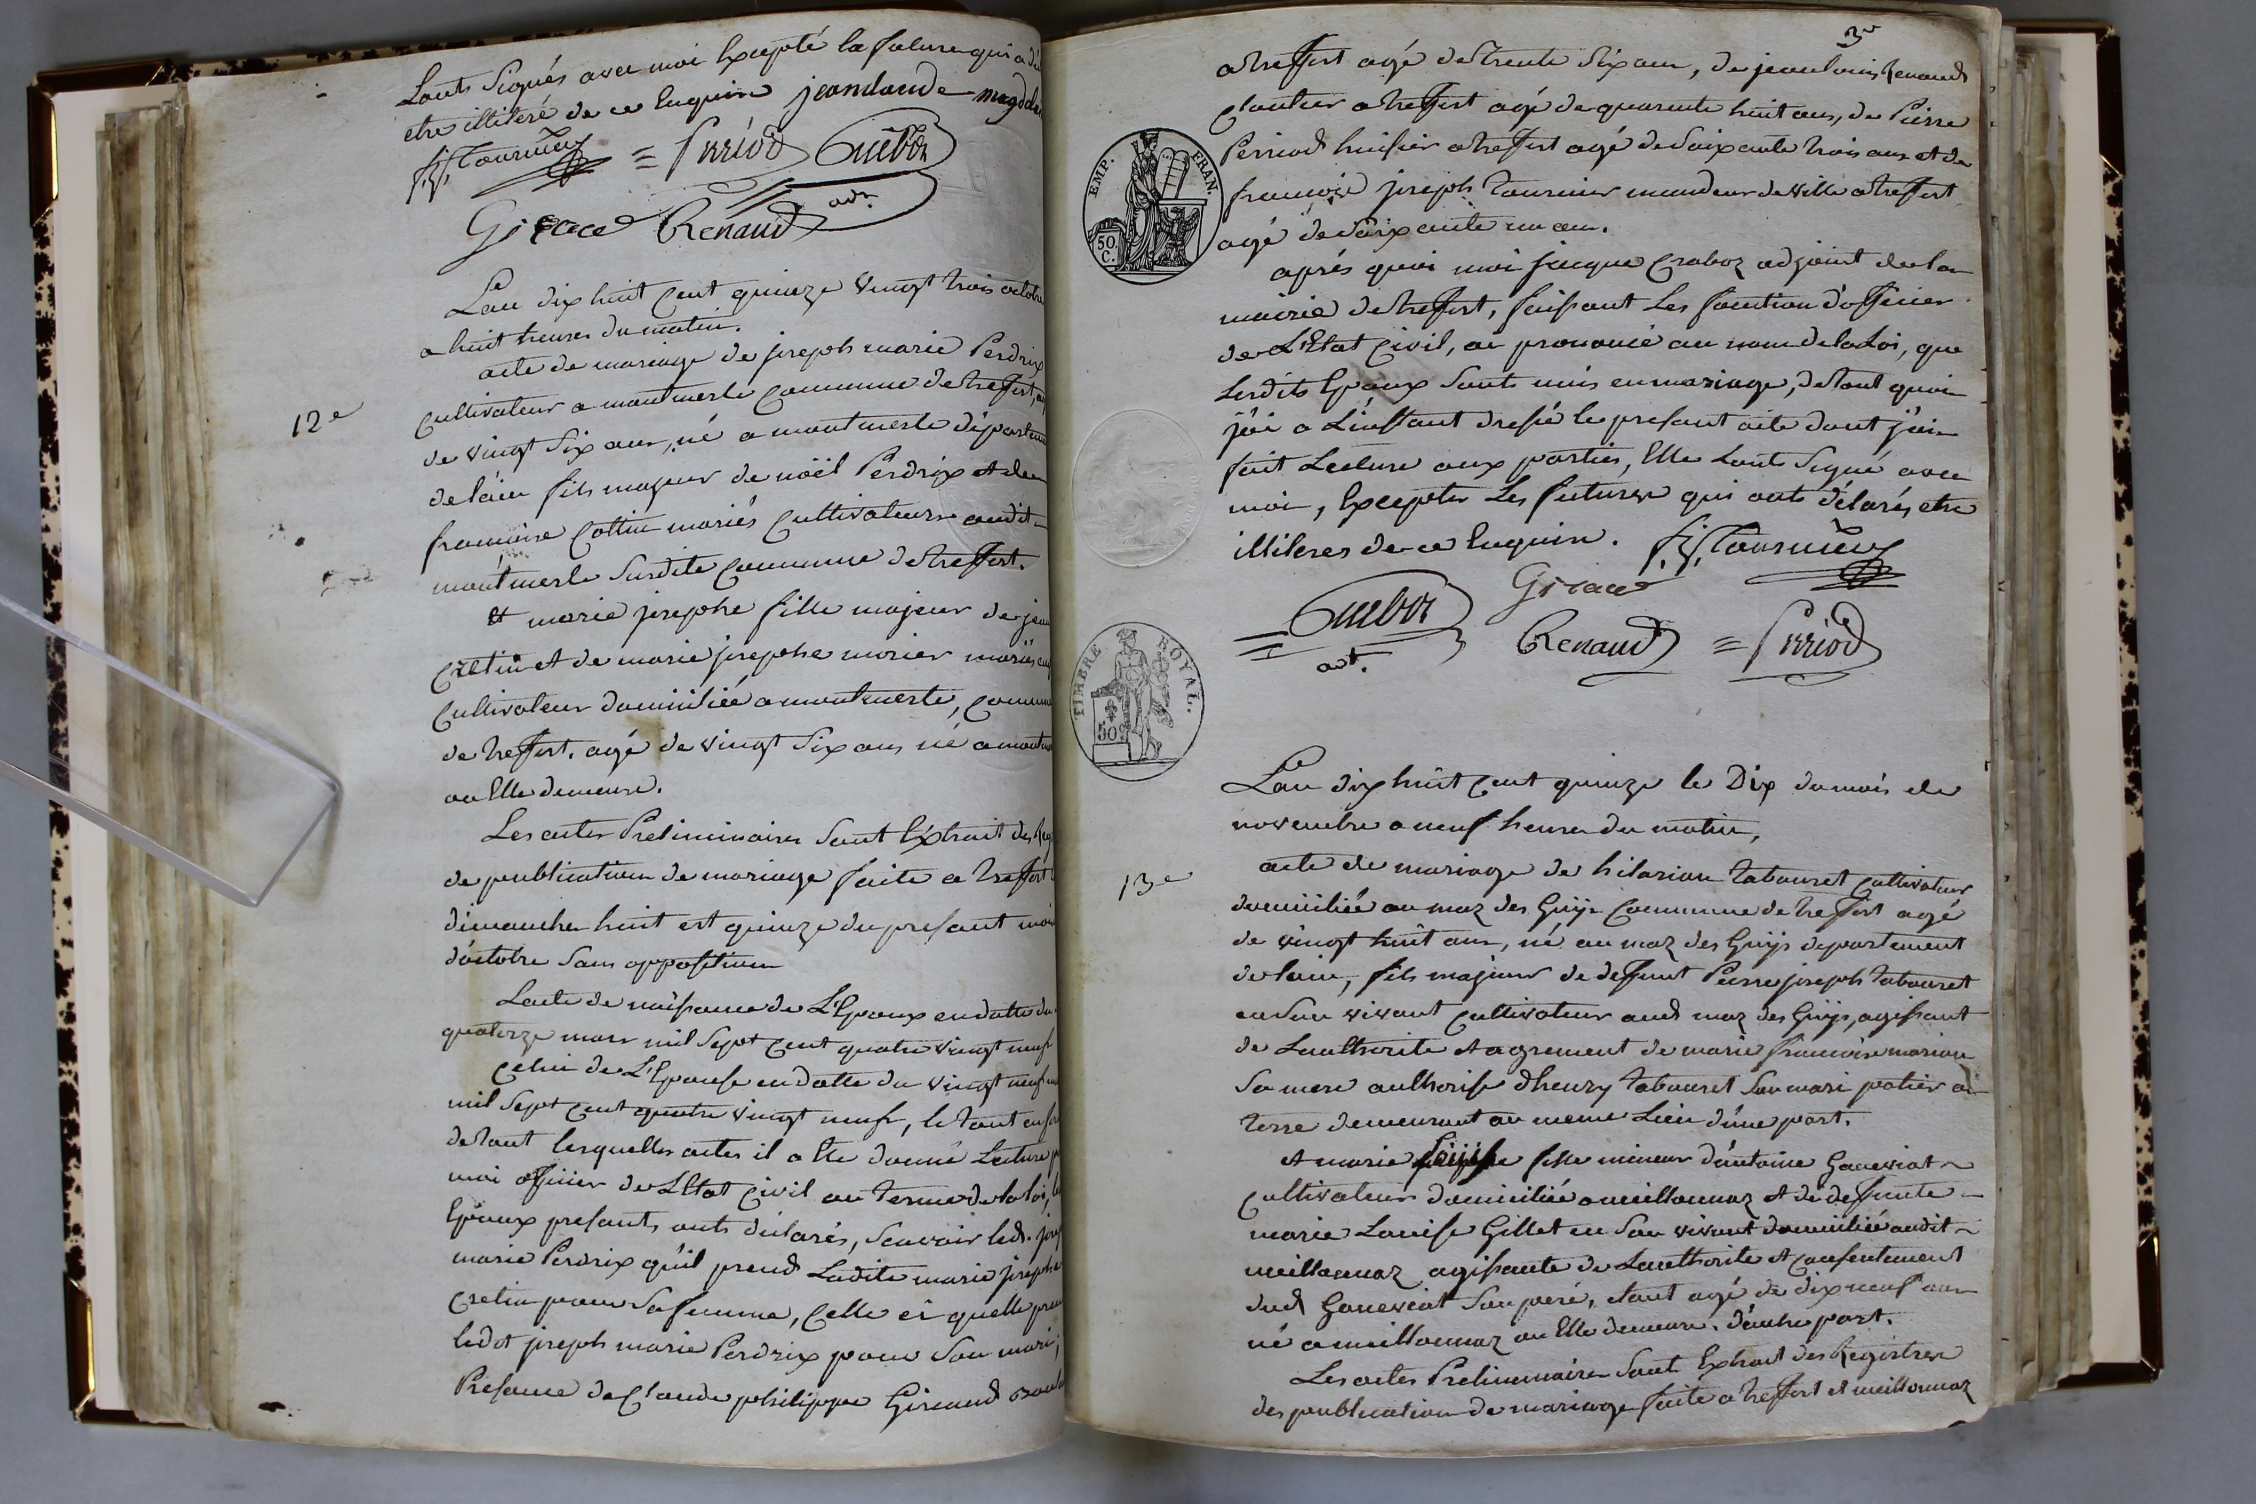 Lonts Signés avec moi Excepté la future qui a dé
etre illiteré de ce Enquire jeandaude magdelai
f.j. Tournier = Perriod Cuébor
Girace Renaud adt.
L'an dix huit Cent quinze Vingt trois octobre
a huit heures du matin.
12e
acte de mariage de joseph marie Perdrix
Cultivateur a montmerle Commune de treffort, ag
de vingt Six ans, né a montmerle départeme
de lain fils majeur de noël Perdrix et de
francoise Cottin mariés Cultivateurs audit
montmerle Susdite Commune de treffort.
Et marie josephe fille majeur de jean
Cretin et de marie josephe morier mariés
Cultivateur domiciliée a montmerle, Commune
de treffort, agé de vingt Six ans né a montm
ou Elle demeure.
Les actes Preliminaires Sont Extrait des Reg
de publication de mariage faite a treffort
dimanche huit est quinze du presant moi
d'octobre Sans oppositium
Lacte de naissance de L'Epoux en datte du
quatorze mars mil Sept Cent quatre vingt neuf
Celui de L'Epouse en datte du vingt neuf
mil Sept Cent quatre vingt neuf, le tout en for
de tout lesquelles actes il a ete donné Lecture p
moi officier de L'Etat Civil au terme de la loi, les
Epoux presants onts déclarés, Scavoir led. jose
marie Perdrix qu'il prend Ladite marie josephe
Cretin pour Sa femme, Celle ci quelle pren
ledt joseph marie Perdrix pour Son mari;
Presance de Claude philippe Giraud
3e
a treffort agé de trente Six ans, de jean louis Renaud
Cloutier a treffort agé de quarante huit ans, de Pierre
Perriod huissier a treffort agé de Soixante trois ans et de
francoise joseph tournier mandeur de ville a treffort
agé de Soixante un ans.
EMP. FRAN.
50 C.
aprés quoi moi jacque Craboz adjoint de la
mairie de treffort, faisant Les fonction d'officier
de L'Etat Civil, ai prononcé au nom de la Loi, que
Lesdits Epoux Sonts unis en mariage, de tout quoi
j'ai a L'instant dressé le presant acte dont j'ai
fait Lecture aux parties, Elle Lonts Signé avec
moi, Excepter Les futures qui onts déclarés etre
illiteres de ce Enquire. f.j. Tournier
Cuébor Girace
adt. Renaud = Perriod
TIMBRE ROYAL.
50c
L'an dix huit Cent quinze le Dix du mois de
novembre a neuf heures du matin,
13e
acte de mariage de hilarion tabouret Cultivateur
domiciliée au maz des Guijs Commune de treffort agé
de vingt huit ans, né au maz des Guijs departement
de lain, fils majeur de deffunt Pierre joseph tabouret
en Son vivant Cultivateur aud maz des Guijs, agissant
de Lauthorite et agrement de marie francoise marion
Sa mere authorise d'henry tabouret Son mari potier de
terre demeurant au meme Lieu d'une part.
et marie fille mineur d'antoine Ganeviat
Cultivateur domiciliée a meillonnaz et de deffunte
marie Louise Gillet en Son vivant domiciliée audit
meillonnaz agissante de Lauthorite et Consentement
dud Ganeviat Son peré, etant agé de dix neuf ans
né a meillonnaz ou Elle demeure. d'autre part.
Les actes Preliminaires Sont Extrait des Registres
des publication de mariage faite a treffort et meillonnaz